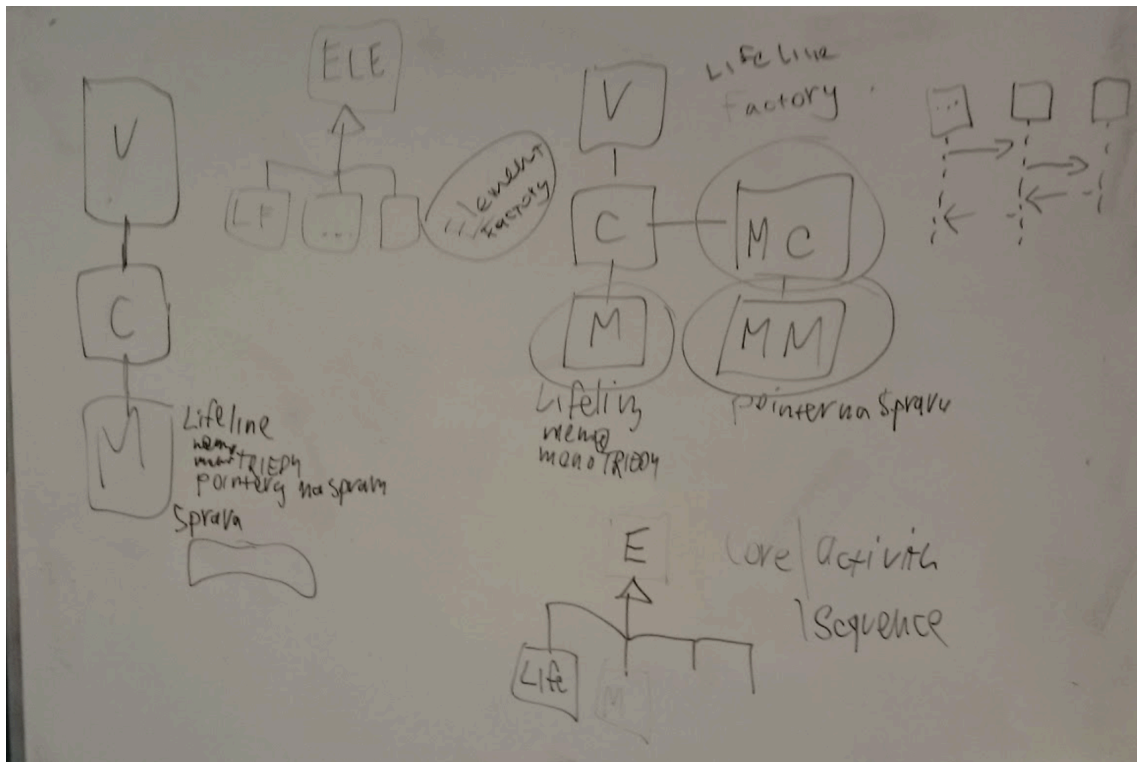 V
C
M
Lifeline
TRIEDY
pointery na spravu
Sprava
ELE
LF
...
Element
Factory
V
C
M
Lifeline
meno
meno TRIEDY
Lifeline
Factory
MC
MM
pointer na Spravu
...
E
Life
M
Core
Activity
Sequence